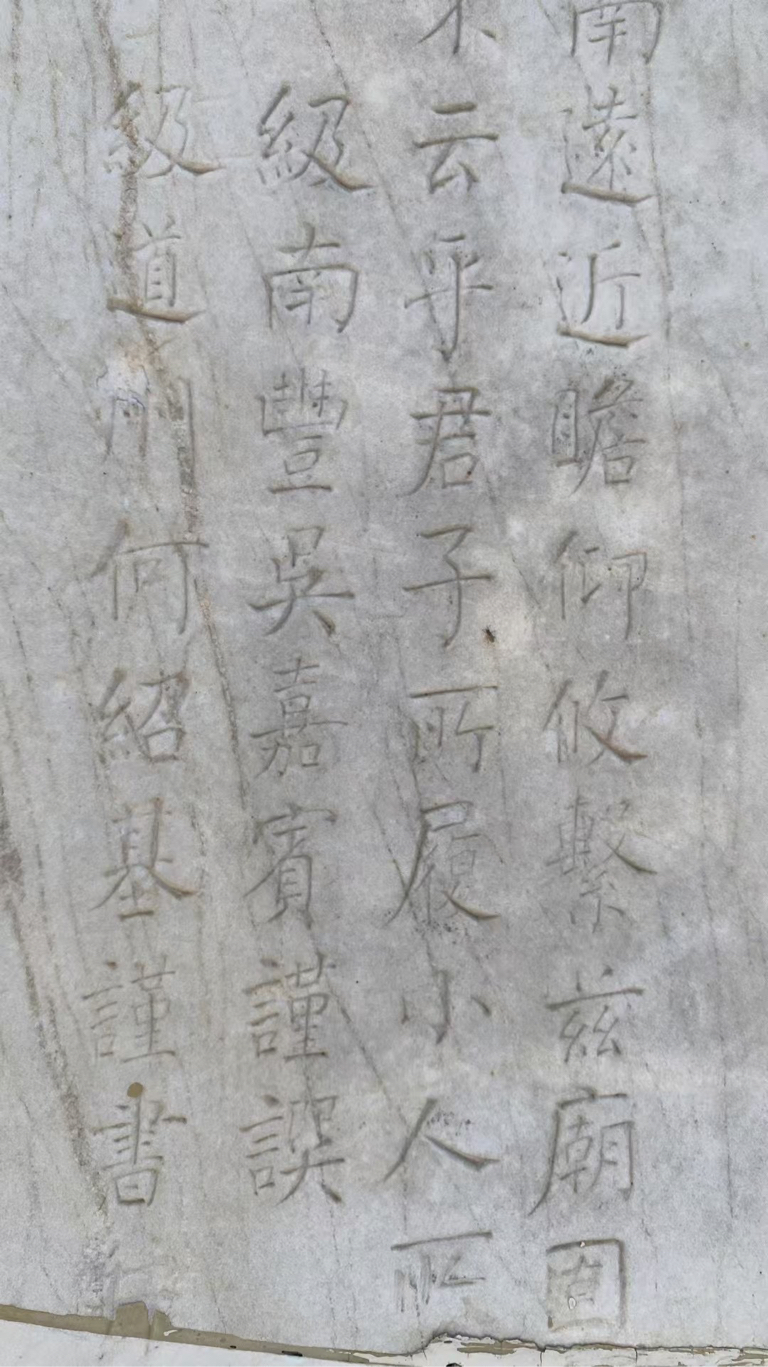 南遠近瞻仰攸繫茲廟固
不云乎君子所履小人所
級南豐吳嘉賓謹譔
級道州何紹基謹書